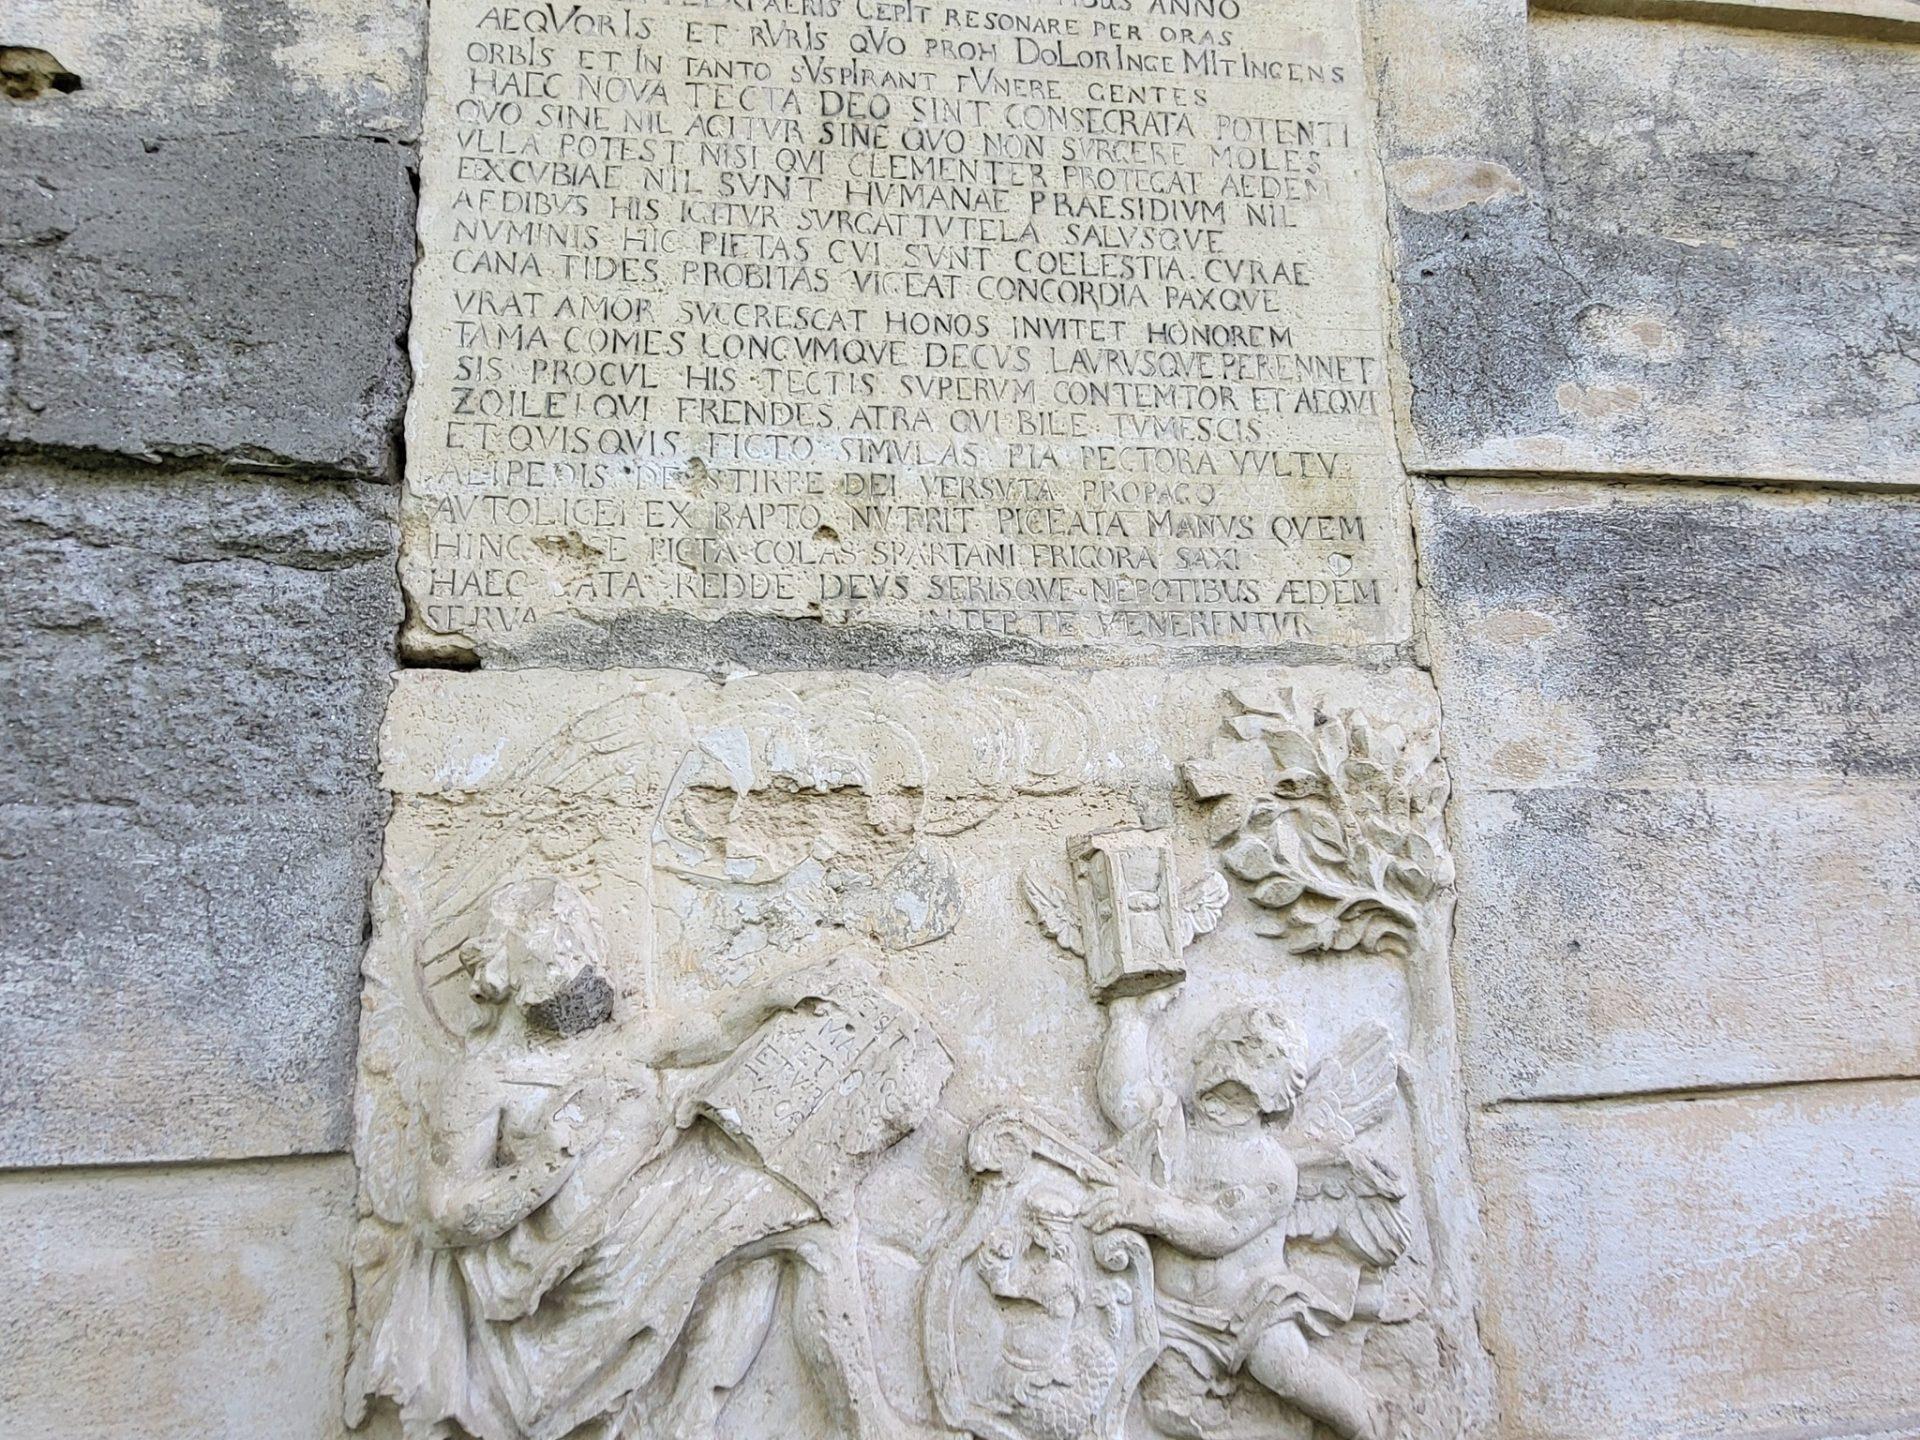 AERIS CEPIT RESONARE PER ORAS ANNO
AEQVORIS ET RVRIS QVO PROH DOLOR INGEMIT INGENS
ORBIS ET IN TANTO SVSPIRANT FVNERE GENTES
HAEC NOVA TECTA DEO SINT CONSECRATA POTENTI
QVO SINE NIL AGITVR SINE QVO NON SVRGERE MOLES
VLLA POTEST NISI QVI CLEMENTER PROTEGAT AEDEM
EXCVBIAE NIL SVNT HVMANAE PRAESIDIVM NIL
AEDIBVS HIS IGITVR SVRGAT TVTELA SALVSQVE
NVMINIS HIC PIETAS CVI SVNT COELESTIA CVRAE
CANA FIDES PROBITAS VIGEAT CONCORDIA PAXQVE
VRAT AMOR SVCCRESCAT HONOS INVITET HONOREM
FAMA COMES LONGVMQVE DECVS LAVRVSQVE PERENNET
SIS PROCVL HIS TECTIS SVPERVM CONTEMTOR ET AEQVI
ZOILE QVI FRENDES ATRA QVI BILE TVMESCIS
ET QVISQVIS FICTO SIMVLAS PIA PECTORA VVLTV
ALIPEDIS DE STIRPE DEI VERSVTA PROPAGO
AVTOLICEI EX RAPTO NVTRIT PICEATA MANVS QVEM
HINC PICTA COLAS SPARTANI FRIGORA SAXI
HAEC RATA REDDE DEVS SERISQVE NEPOTIBVS ÆDEM
SERVA TE VENERENTVR